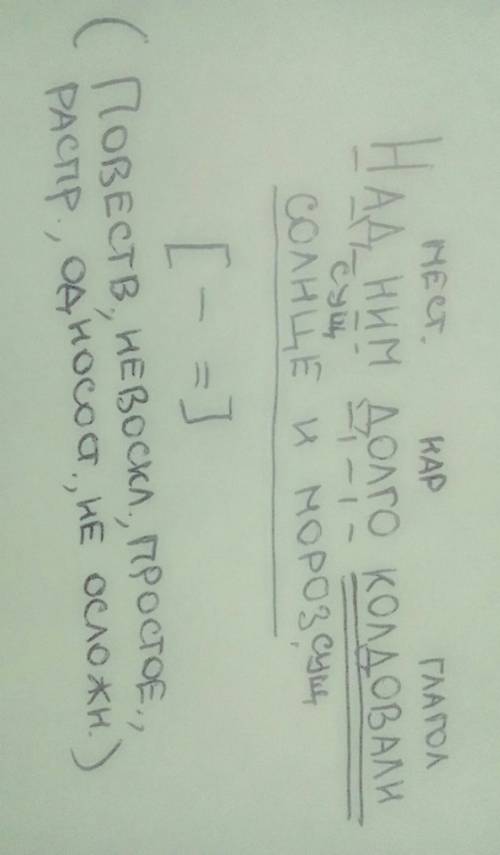 МЕСТ. НАР ГЛАГОЛ
НАД НИМ ДОЛГО КОЛДОВАЛИ
СУЩ СУЩ
СОЛНЦЕ И МОРОЗ.
[ - = ]
(ПОВЕСТВ., НЕВОСКЛ., ПРОСТОЕ.,
РАСПР., ОДНОСОСТ., НЕ ОСЛОЖН.)